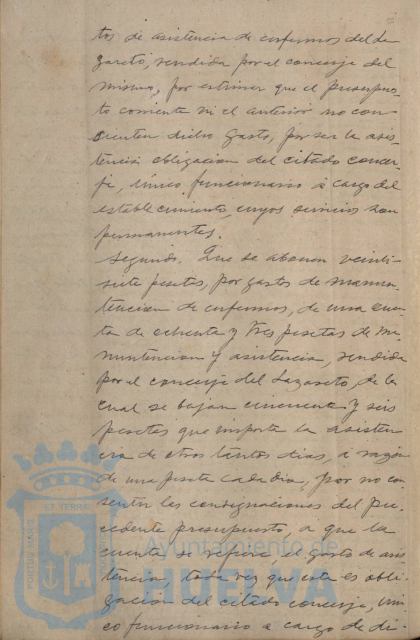 tos de asistencia de enfermos del La
zareto, rendida por el conserje del
mismo, por estimar que el presupues
to corriente ni el anterior no con
sienten dicho gasto, por ser la asis
tencia obligacion del citado conser
je, único funcionario á cargo del
establecimiento, cuyos servicios son
permanentes.
Segundo. Que se abonen veinti
siete pesetas, por gastos de manu
tencion de enfermos, de una cuen
ta de ochenta y tres pesetas de ma
nutencion y asistencia, rendida
por el conserje del Lazareto, de la
cual se bajan cincuenta y seis
pesetas que importa la asisten
cia de otros tantos dias, á razón
de una peseta cada dia, por no con
sentir las consignaciones del pre
cedente presupuesto, a que la
cuenta se refiere el gasto de asis
tencia, toda vez que este es obli
gacion del citado conserje, úni
co funcionario a cargo de di-
PORTUS MARIS
ET TERRAE
Ayuntamiento de
HUELVA